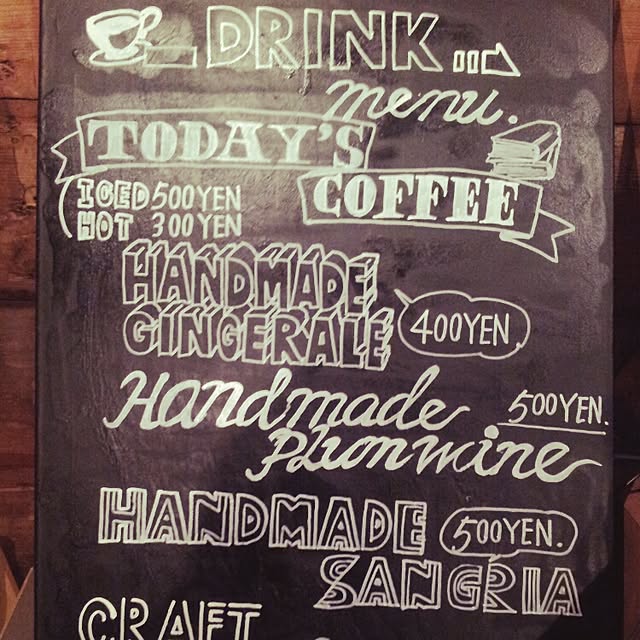 DRINK
menu.
TODAY'S
COFFEE
ICED 500YEN
HOT 300YEN
HANDMADE
GINGERALE
400YEN.
Handmade
Plumwine
500YEN.
HANDMADE
500YEN.
SANGRIA
CRAFT